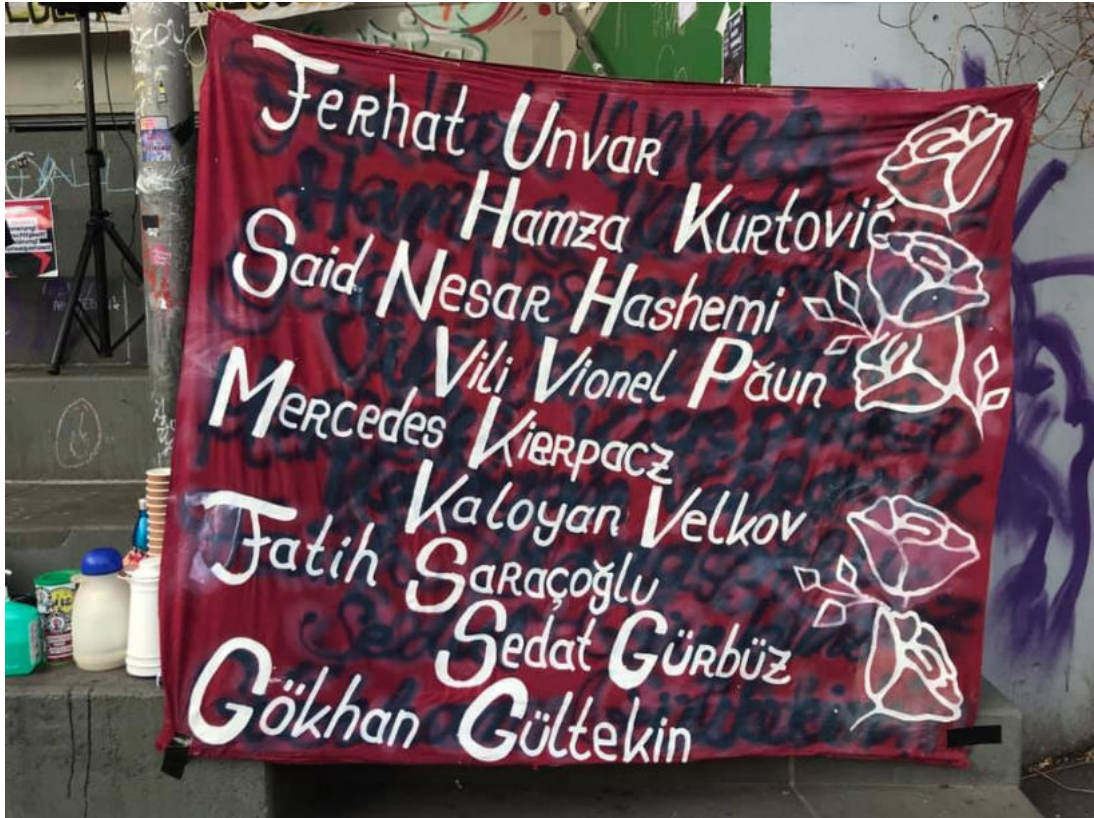 Ferhat Unvar
Hamza Kurtović
Said Nesar Hashemi
Vili Viorel Păun
Mercedes Kierpacz
Kaloyan Velkov
Fatih Saraçoğlu
Sedat Gürbüz
Gökhan Gültekin